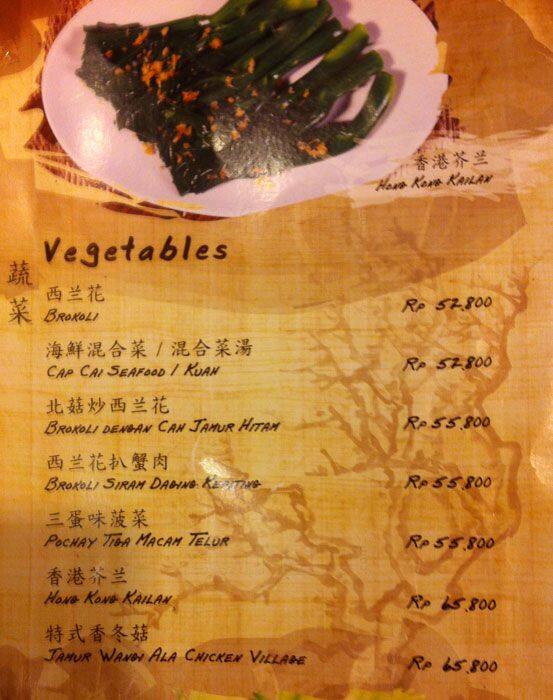 香港芥兰
Hong Kong Kailan
Vegetables
蔬菜
西兰花
Brokoli
Rp 52,800
海鮮混合菜 / 混合菜湯
Cap Cai Seafood / Kuah
Rp 52,800
北菇炒西兰花
Brokoli dengan Cah Jamur Hitam
Rp 55,800
西兰花扒蟹肉
Brokoli Siram Daging Kepiting
Rp 55,800
三蛋味菠菜
Pochay Tiga Macam Telur
Rp 55,800
香港芥兰
Hong Kong Kailan
Rp 65,800
特式香冬菇
Jamur Wangi Ala Chicken Village
Rp 65,800